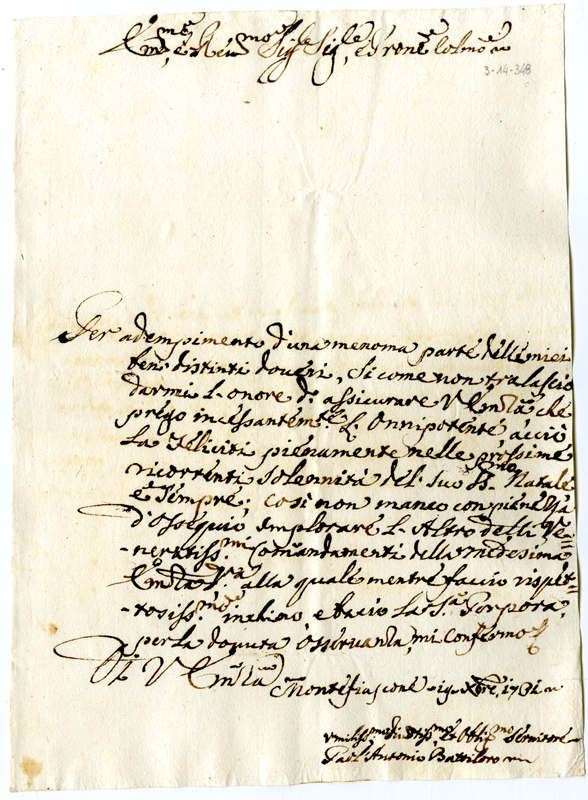 Em.mo, e Reu.mo Sig.re Sig.re, e Prone Colmo
3-14-348
Per adempimento d'una menoma parte delle miei
ben distinti doueri, Si come non tralascio
darmi L-onore di assicurare V Em:za che
prego incessantem.te L- Onnipotente acciò
La Feliciti pienamente nelle prossime
ricorrenti Solennità del Suo SSmo Natale
e Sempre; Così non manco con piene
d'Ossequio emplorare L-Altro delli Ve=
-neratiss.mi Comandamenti della medesima
Em:za V.ra alla quale mentre faccio rispet=
-tosiss.mo inchino, e bacio La S.a Porpora,
per la douuta Osseruanza, mi Confermo
Di V Em:za
Montefiascone Xbre, 1731
Vmiliss.mo Diuotiss.mo et Oblig.mo Seruitore
Antonio Battiloro